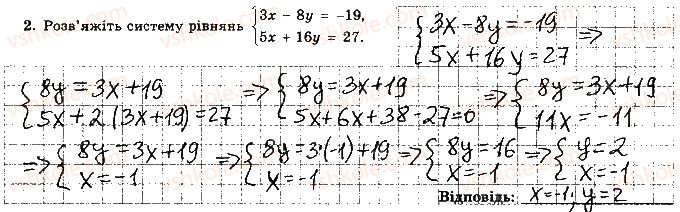 2. Розв'яжіть систему рівнянь { 3x − 8y = −19, 5x + 16y = 27. { 3x − 8y = −19 5x + 16y = 27 =>
{ 8y = 3x + 19 5x + 2(3x + 19) = 27 => { 8y = 3x + 19 5x + 6x + 38 − 27 = 0 => { 8y = 3x + 19 11x = −11
=> { 8y = 3x + 19 x = −1 => { 8y = 3·(−1) + 19 x = −1 => { 8y = 16 x = −1 => { y = 2 x = −1
Відповідь: x = −1; y = 2